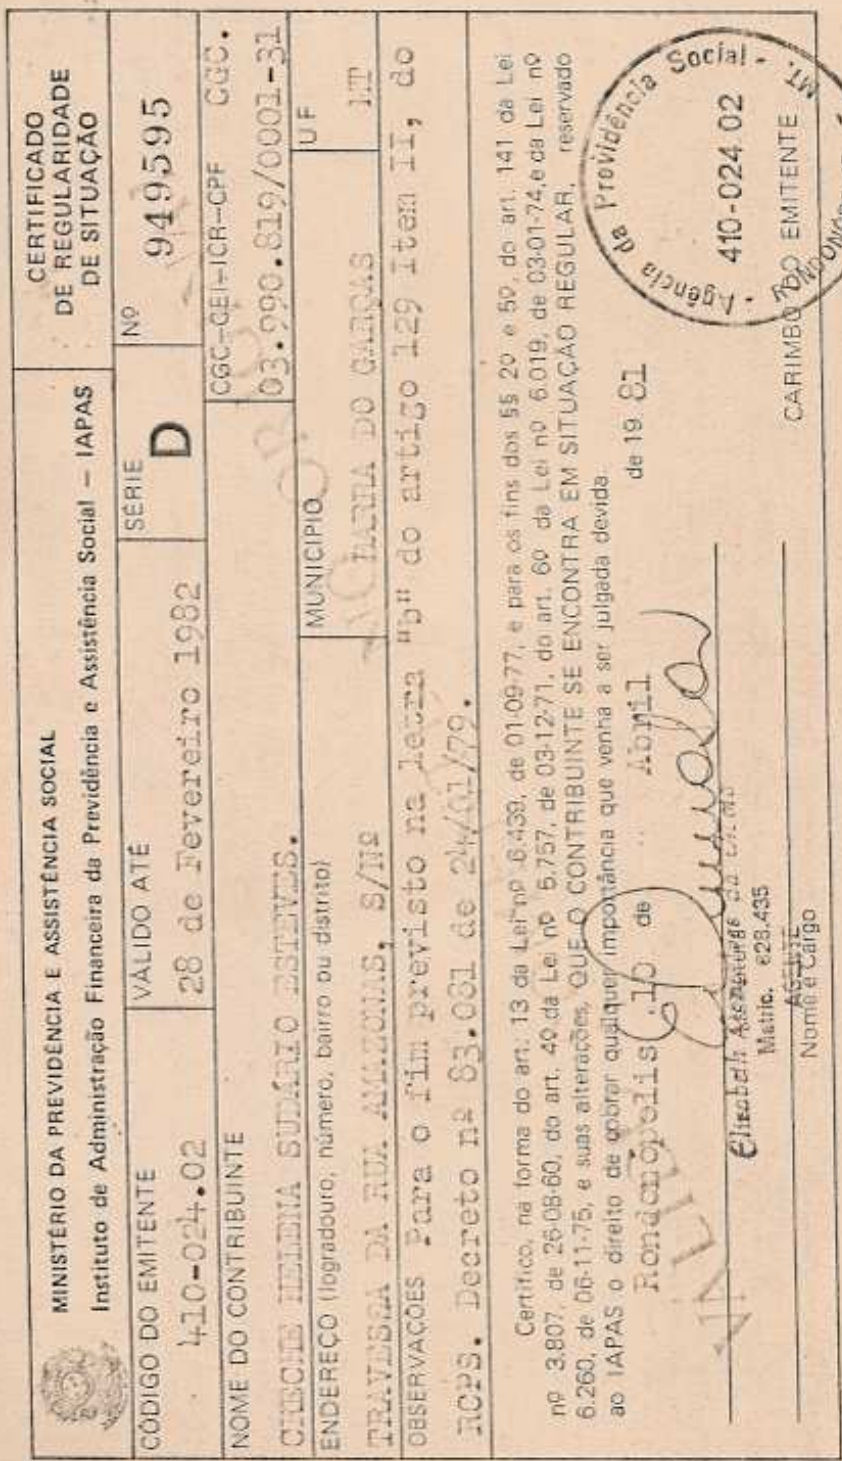 MINISTÉRIO DA PREVIDÊNCIA E ASSISTÊNCIA SOCIAL
Instituto de Administração Financeira da Previdência e Assistência Social – IAPAS
CERTIFICADO
DE REGULARIDADE
DE SITUAÇÃO
CÓDIGO DO EMITENTE
410-024.02
VÁLIDO ATÉ
28 de Fevereiro 1982
SÉRIE
D
Nº
949595
NOME DO CONTRIBUINTE
HELENA SUDÁRIO ESTEVES.
CGC-CEI-ICR-CPF CGC.
03.990.819/0001-31
ENDEREÇO (logradouro, número, bairro ou distrito)
TRAVESSA DA RUA AMAZONAS, S/Nº
MUNICIPIO
BARRA DO GARÇAS
UF
MT
OBSERVAÇÕES Para o fim previsto na letra "b" do artigo 129 Item II, do
RCPS. Decreto nº 83.081 de 24/01/79.
Certifico, na forma do art. 13 da Lei nº 6.439, de 01-09-77, e para os fins dos §§ 2º e 5º do art. 141 da Lei
nº 3.807, de 26-08-60, do art. 4º da Lei nº 5.757, de 03-12-71, do art. 6º da Lei nº 6.019, de 03-01-74, e da Lei nº
6.260, de 06-11-75, e suas alterações, QUE O CONTRIBUINTE SE ENCONTRA EM SITUAÇÃO REGULAR, reservado
ao IAPAS o direito de cobrar qualquer importância que venha a ser julgada devida.
Rondonópolis, 10 de Abril de 19 81
Elizabeth
Matric. 628.435
AGENTE
Nome e Cargo
Agência da Previdência Social - MT.
410-024 02
CARIMBO DO EMITENTE